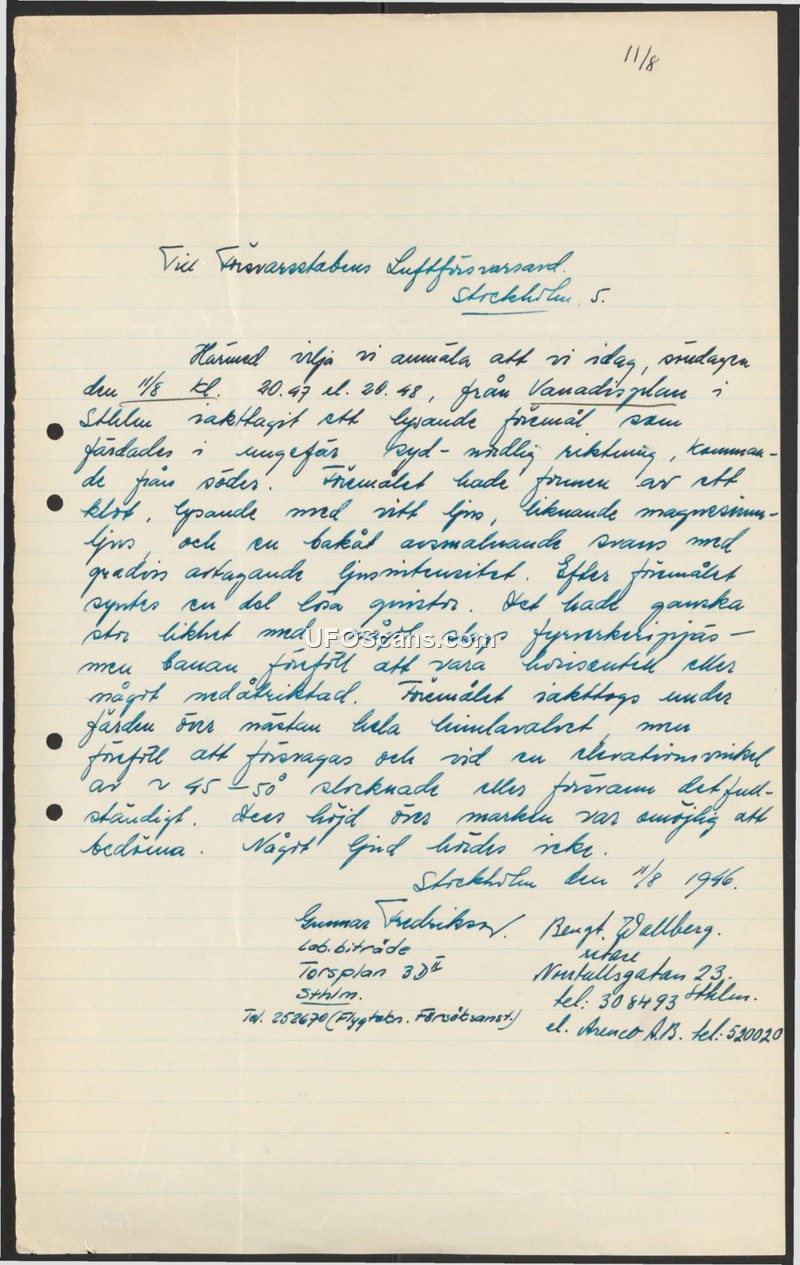 11/8
Till Försvarsstabens Luftförsvarsavd.
Stockholm 5.
Härmed vilja vi anmäla att vi idag, söndagen
den 11/8 kl. 20.47 el. 20.48, från Vanadisplan i
Sthlm iakttagit ett lysande föremål som
färdades i ungefär syd-nordlig riktning, komman-
de från söder. Föremålet hade formen av ett
klot, lysande med vitt ljus, liknande magnesium-
ljus, och en bakåt avsmalnande svans med
gradvis avtagande ljusintensitet. Efter föremålet
syntes en del lösa gnistor. Det hade ganska
stor likhet med något slags fyrverkeripjäs -
men banan föreföll att vara horisontell eller
något nedåtriktad. Föremålet iakttogs under
färden över nästan hela himlavalvet, men
föreföll att försvagas och vid en elevationsvinkel
av ~ 45-50° slocknade eller försvann det full-
ständigt. Dess höjd över marken var omöjlig att
bedöma. Något ljud hördes icke.
Stockholm den 11/8 1946.
Gunnar Fredrikson. Bengt Wallberg.
Lab.biträde ritare
Torsplan 3D II Norrtullsgatan 23.
Sthlm. tel: 308493 Sthlm.
Tel. 252670 (Flygtekn. Försöksanst.) el. Arenco A.B. tel: 520020
UFOScans.com